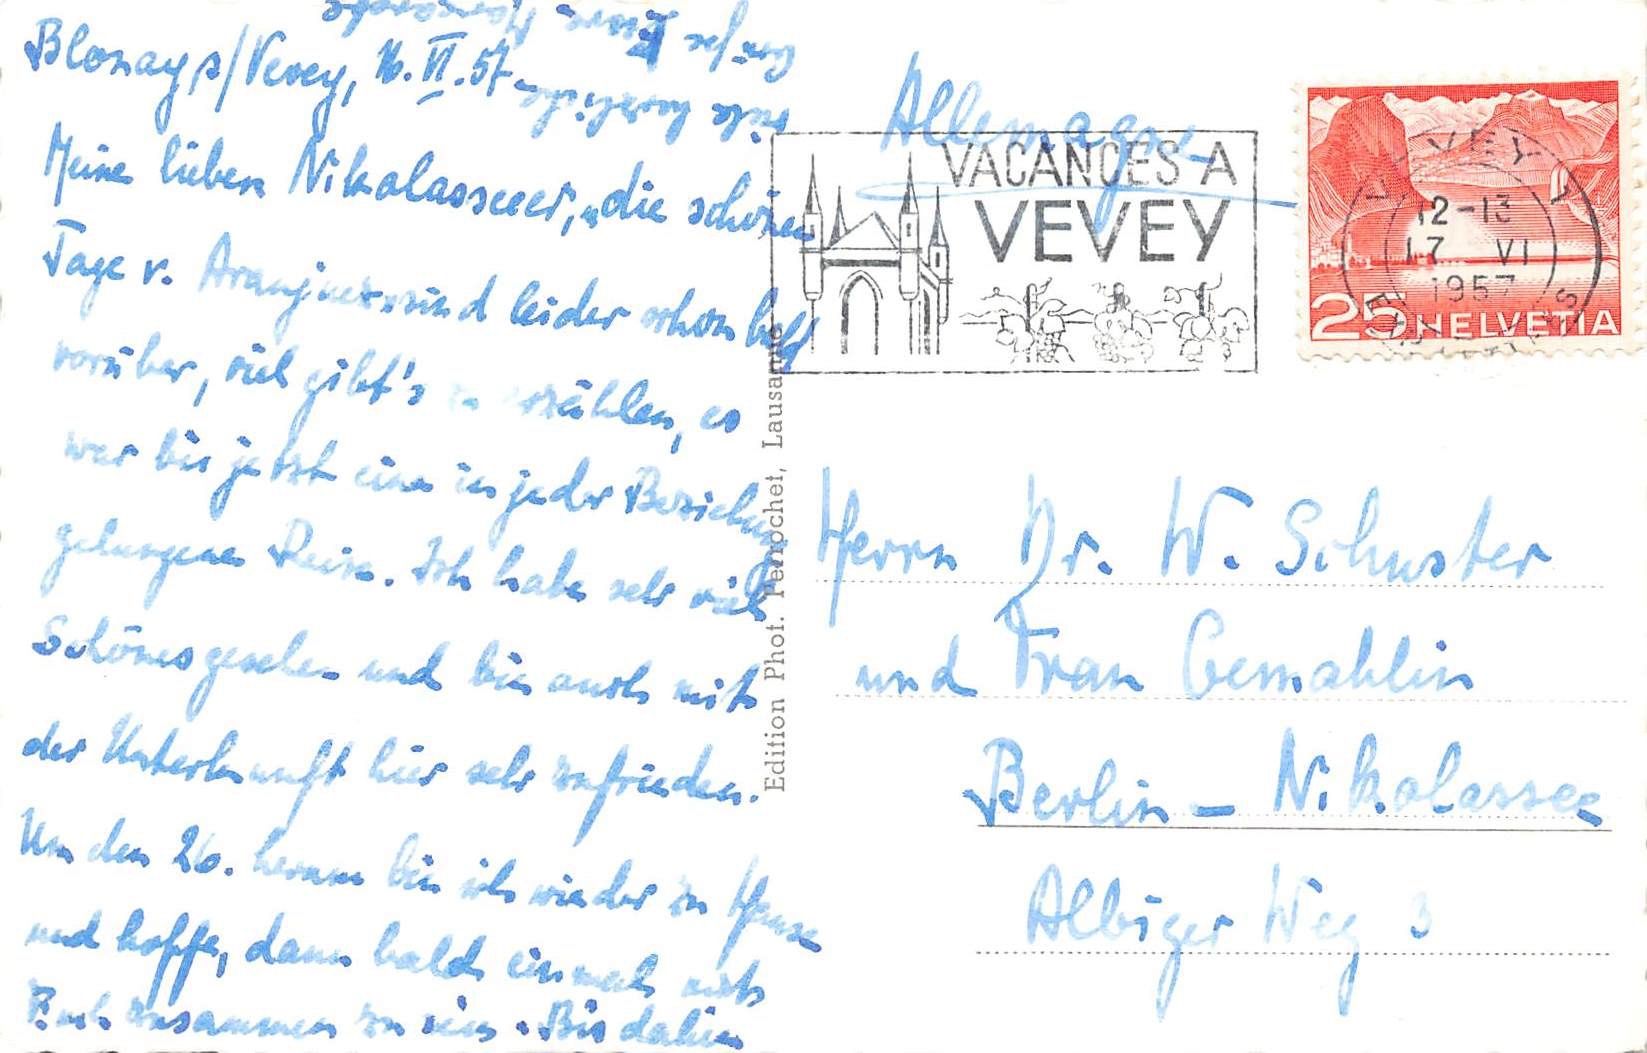 Blonay s/Vevey, 16. VI. 57
Meine lieben Nikolasseeer, „die schönen
Tage v. Aranjuez" sind leider schon bald
vorüber, viel gibt's zu erzählen, es
war bis jetzt eine in jeder Beziehung
gelungene Reise. Ich habe sehr viel
Schönes gesehen und bin auch mit
der Unterkunft hier sehr zufrieden.
Um den 26. herum bin ich wieder zu Hause
und hoffe, dann bald einmal mit
Euch zusammen zu sein. Bis dahin
viele herzliche
Allemagne
VACANCES A
VEVEY
VEVEY
12-13
17 VI
1957
25 HELVETIA
Edition Phot. Perrochet, Lausanne
Herrn Dr. W. Schuster
und Frau Gemahlin
Berlin - Nikolassee
Albiger Weg 3